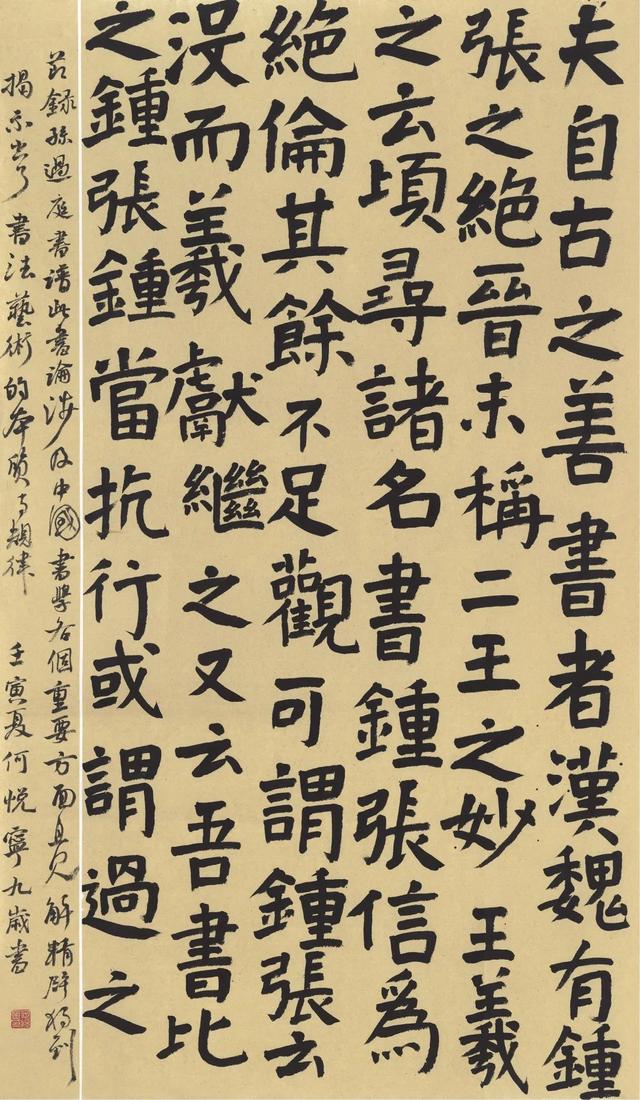 夫自古之善書者漢魏有鍾
張之絶晉末稱二王之妙王羲
之云頃尋諸名書鍾張信爲
絶倫其餘不足觀可謂鍾張云
没而羲獻繼之又云吾書比
之鍾張鍾當抗行或謂過之
節錄孫過庭書譜此書論涉及中國書學各個重要方面且見解精辟獨到
揭示出了書法藝術的本質与規律 壬寅夏何悦寧九歲書